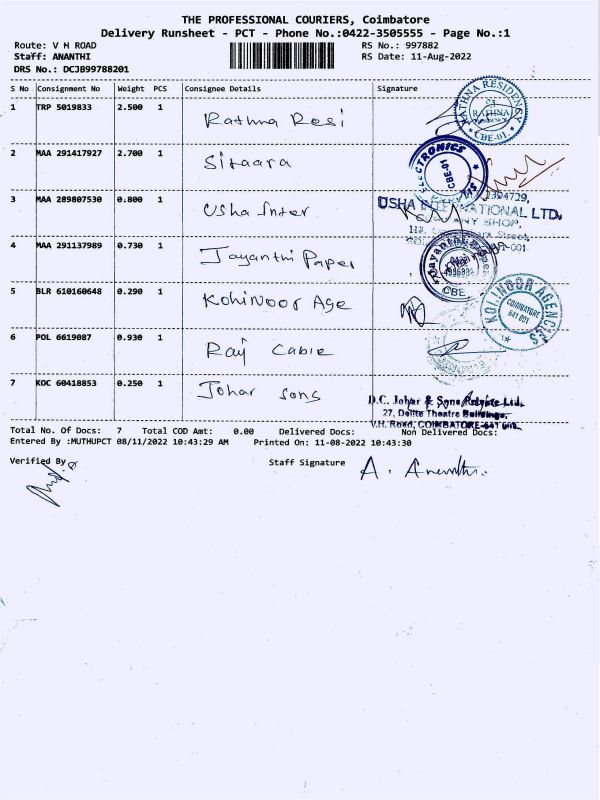 THE PROFESSIONAL COURIERS, Coimbatore
Delivery Runsheet - PCT - Phone No.:0422-3505555 - Page No.:1
Route: V H ROAD RS No.: 997882
Staff: ANANTHI RS Date: 11-Aug-2022
DRS No.: DCJB99788201
S No Consignment No Weight PCS Consignee Details Signature
1 TRP 5019833 2.500 1 Rathna Resi
RATHNA RESIDENCY
RATHNA
CBE-01.
2 MAA 291417927 2.700 1 Sitaara
ELECTRONICS
CBE-01
3 MAA 289807530 0.800 1 Usha Inter
2394729,
USHA INTERNATIONAL LTD.
4 MAA 291137989 0.730 1 Jayanthi Paper
Jayanthi Paper
CBE
5 BLR 610160648 0.290 1 Kohinoor Age
KOHINOOR AGENCIES
COIMBATORE
641 001
6 POL 6619087 0.930 1 Raj Cable
7 KOC 60418853 0.250 1 Johar Sons
D.C. Johar & Sons Private Ltd.
27, Delite Theatre Buildings,
V.H. Road, COIMBATORE-641 001.
Total No. Of Docs: 7 Total COD Amt: 0.00 Delivered Docs: Non Delivered Docs:
Entered By :MUTHUPCT 08/11/2022 10:43:29 AM Printed On: 11-08-2022 10:43:30
Verified By Staff Signature A. Ananthi.